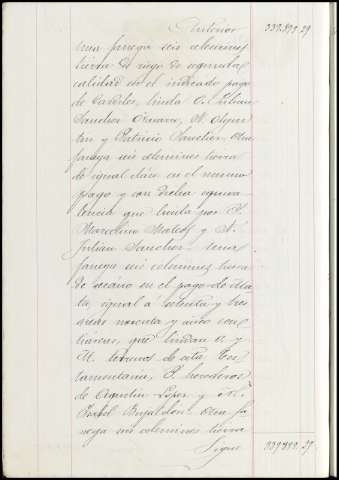 Anterior 939.899.29
una fanega seis celemines
tierra de riego de segunda
calidad en el indicado pago
de linda E. Julian
Sanchez N. Agus-
tin y Patricio Sanchez. Otra
fanega seis celemines tierra
de igual clase en el mismo
pago y con dicha equiva-
lencia que linda por P.
Marcelino Mateos y N.
Julian Sanchez una
fanega seis celemines tierra
de secano en el pago de
ta, igual á setenta y tres
areas noventa y cinco cen-
tiáreas, que lindan E. y
M. terrenos de esta Tes-
tamentaria, P. herederos
de Agustin Lopez y N.
Otra fa-
nega seis celemines tierra
Sigue 939.899.29